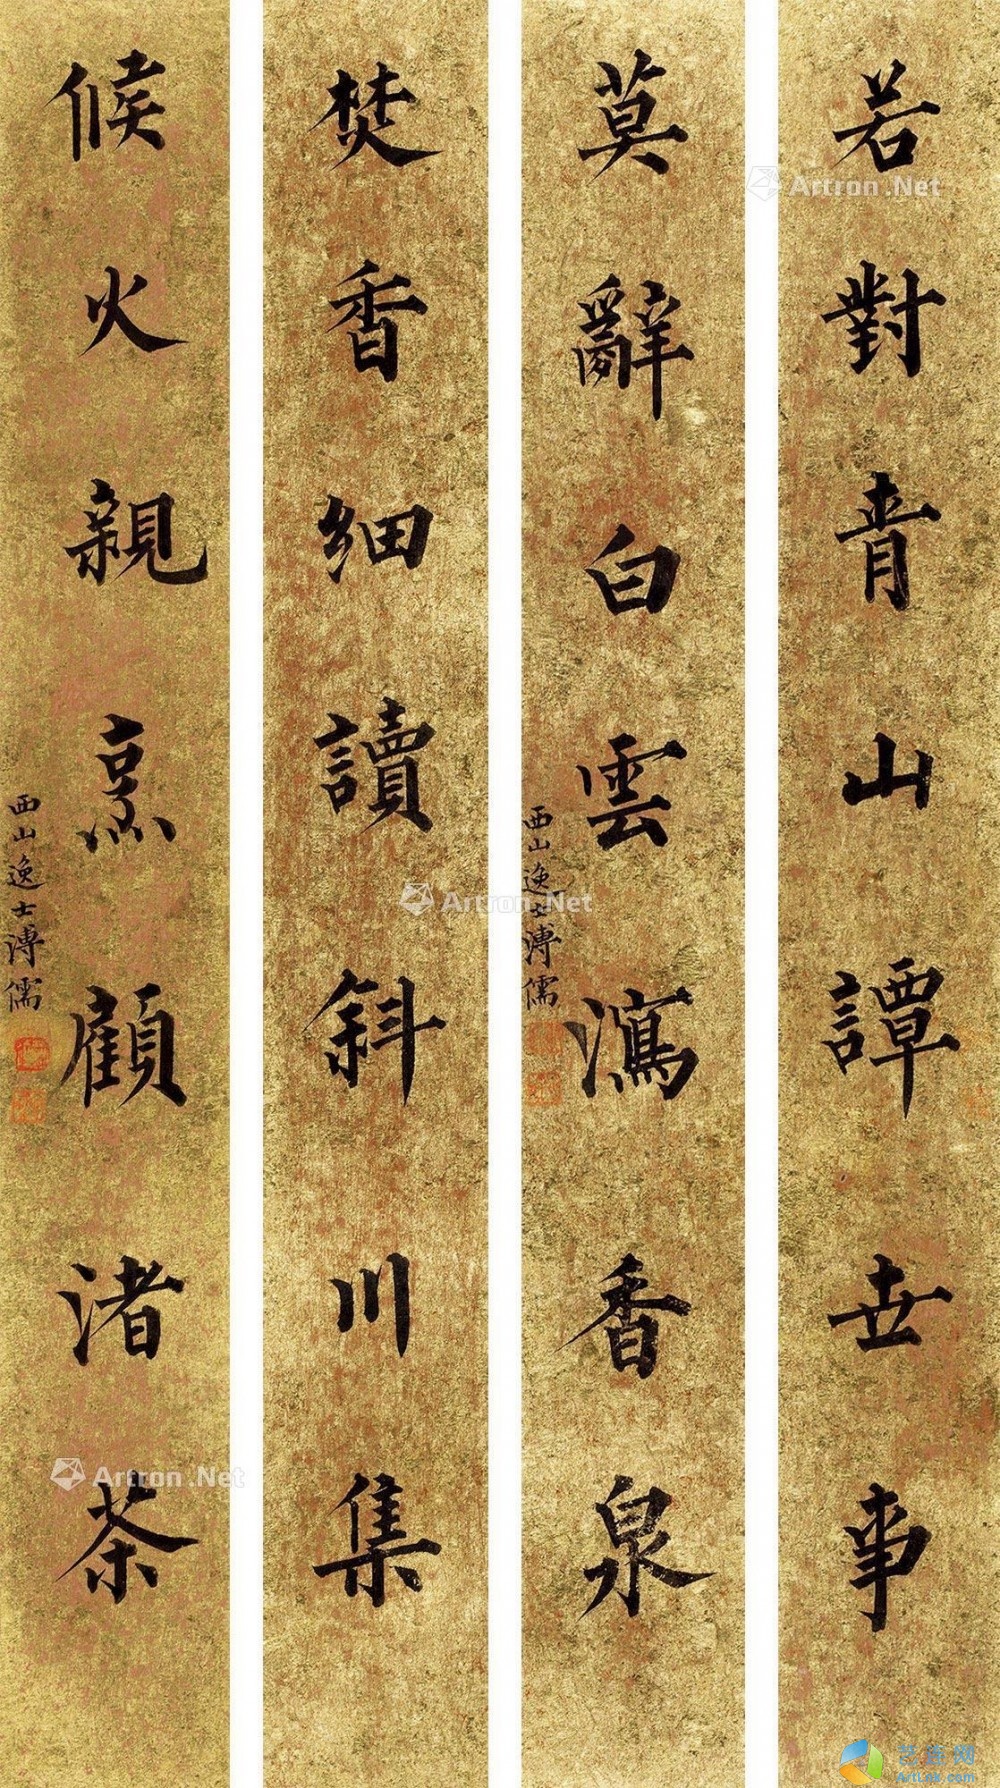 若對青山譚世事
莫辭白雲瀉香泉
西山逸士溥儒
焚香細讀斜川集
候火親烹顧渚茶
西山逸士溥儒
Artron.Net
Artron.Net
Artron.Net
艺连网
ArtLex.com